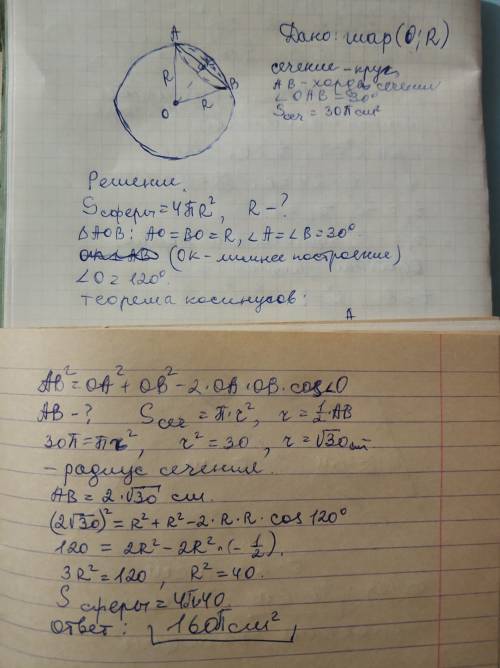 Дано: шар (O; R)
сечение – круг,
AB – хорда сечения
∠OAB = 30°
Sсеч = 30π см²
A
R
B
O
R
Решение.
Sсферы = 4πR², R – ?
△AOB: AO = BO = R, ∠A = ∠B = 30°.
OK ⊥ AB (OK – лишнее построение)
∠O = 120°.
теорема косинусов:
A
AB² = OA² + OB² – 2·OA·OB·cos∠O
AB – ? Sсеч = π·r², r = ½·AB
30π = πr², r² = 30, r = √30 см
– радиус сечения.
AB = 2·√30 см.
(2√30)² = R² + R² – 2·R·R·cos 120°
120 = 2R² – 2R²·(–½).
3R² = 120, R² = 40.
Sсферы = 4π·40
ответ: 160π см²